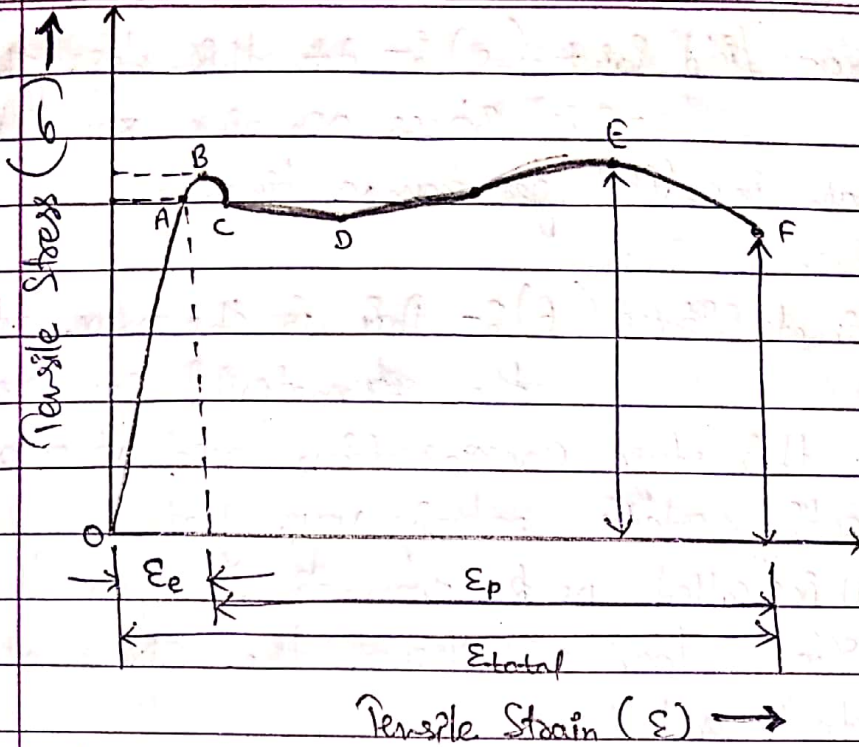 Tensile Stress (σ)
E
B
A
C
D
F
O
εe
εp
εtotal
Tensile Strain (ε)